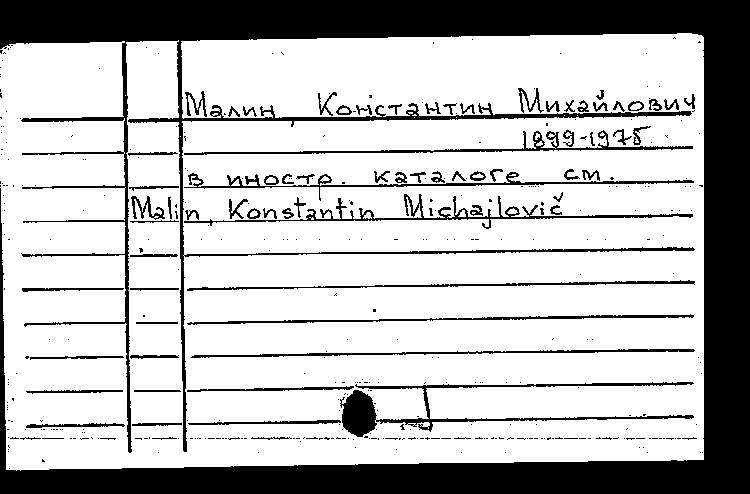 Малин, Константин Михайлович
1899-1975
в иностр. каталоге см.
Malin, Konstantin Michajlovič